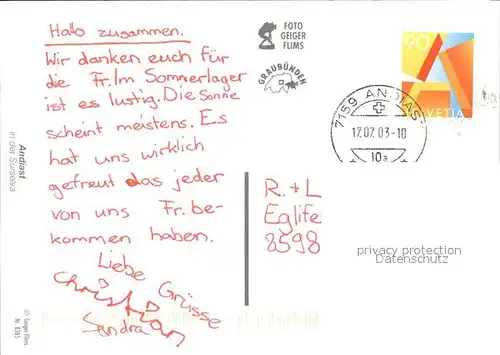 Hallo zusammen.
Wir danken euch für
die Fr. Im Sommerlager
ist es lustig. Die Sonne
scheint meistens. Es
hat uns wirklich
gefreut das jeder
von uns Fr. be-
kommen haben.
Liebe
Grüsse
Christian
Sandra
Andiast
in der Surselva
© Geiger Flims
Nr. 8385
FOTO
GEIGER
FLIMS
GRAUBÜNDEN
7159 ANDIAST
17.07.03-10
10a
90
A
HELVETIA
R. + L
Eglife
8598
privacy protection
Datenschutz